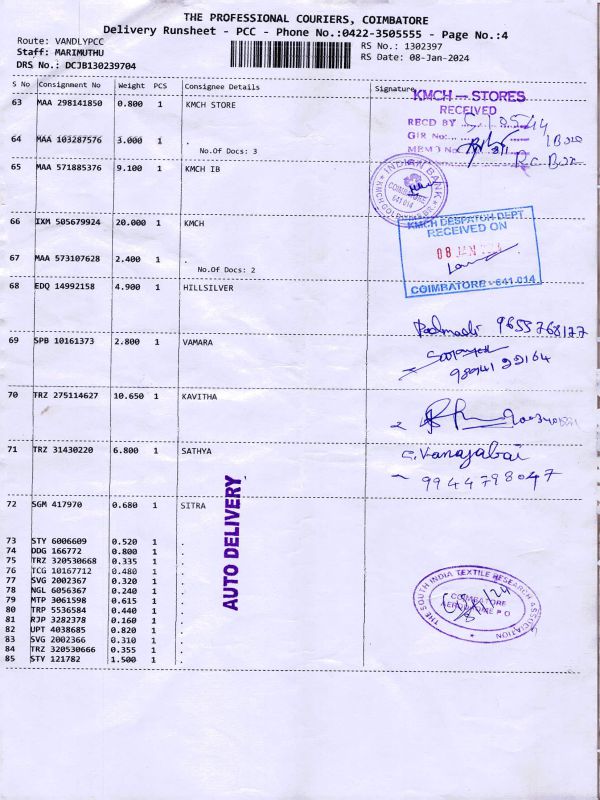 THE PROFESSIONAL COURIERS, COIMBATORE
Delivery Runsheet - PCC - Phone No.:0422-3505555 - Page No.:4
Route: VANDLYPCC
RS No.: 1302397
Staff: MARIMUTHU
RS Date: 08-Jan-2024
DRS No.: DCJB130239704
S No Consignment No Weight PCS Consignee Details Signature
63 MAA 298141850 0.800 1 KMCH STORE
KMCH — STORES
RECEIVED
RECD BY
GIR No:
MEMO No
64 MAA 103287576 3.000 1 .
No.Of Docs: 3
65 MAA 571885376 9.100 1 KMCH IB
INDIAN BANK
COIMBATORE
641 014
66 IXM 505679924 20.000 1 KMCH
KMCH DESPATCH DEPT
RECEIVED ON
08 JAN
COIMBATORE - 641 014
67 MAA 573107628 2.400 1 .
No.Of Docs: 2
68 EDQ 14992158 4.900 1 HILLSILVER
9655768177
69 SPB 10161373 2.800 1 VAMARA
70 TRZ 275114627 10.650 1 KAVITHA
71 TRZ 31430220 6.800 1 SATHYA
C. Vanajabai
9944798047
72 SGM 417970 0.680 1 SITRA
AUTO DELIVERY
73 STY 6006609 0.520 1 .
74 DDG 166772 0.800 1 .
75 TRZ 320530668 0.335 1 .
76 TCG 10167712 0.480 1 .
77 SVG 2002367 0.320 1 .
78 NGL 6056367 0.240 1 .
79 MTP 3061598 0.615 1 .
80 TRP 5536584 0.440 1 .
81 RJP 3282378 0.160 1 .
82 UPT 4038685 0.820 1 .
83 SVG 2002366 0.310 1 .
84 TRZ 320530666 0.355 1 .
85 STY 121782 1.500 1 .
THE SOUTH INDIA TEXTILE RESEARCH ASSOCIATION
COIMBATORE
AERODROME P O